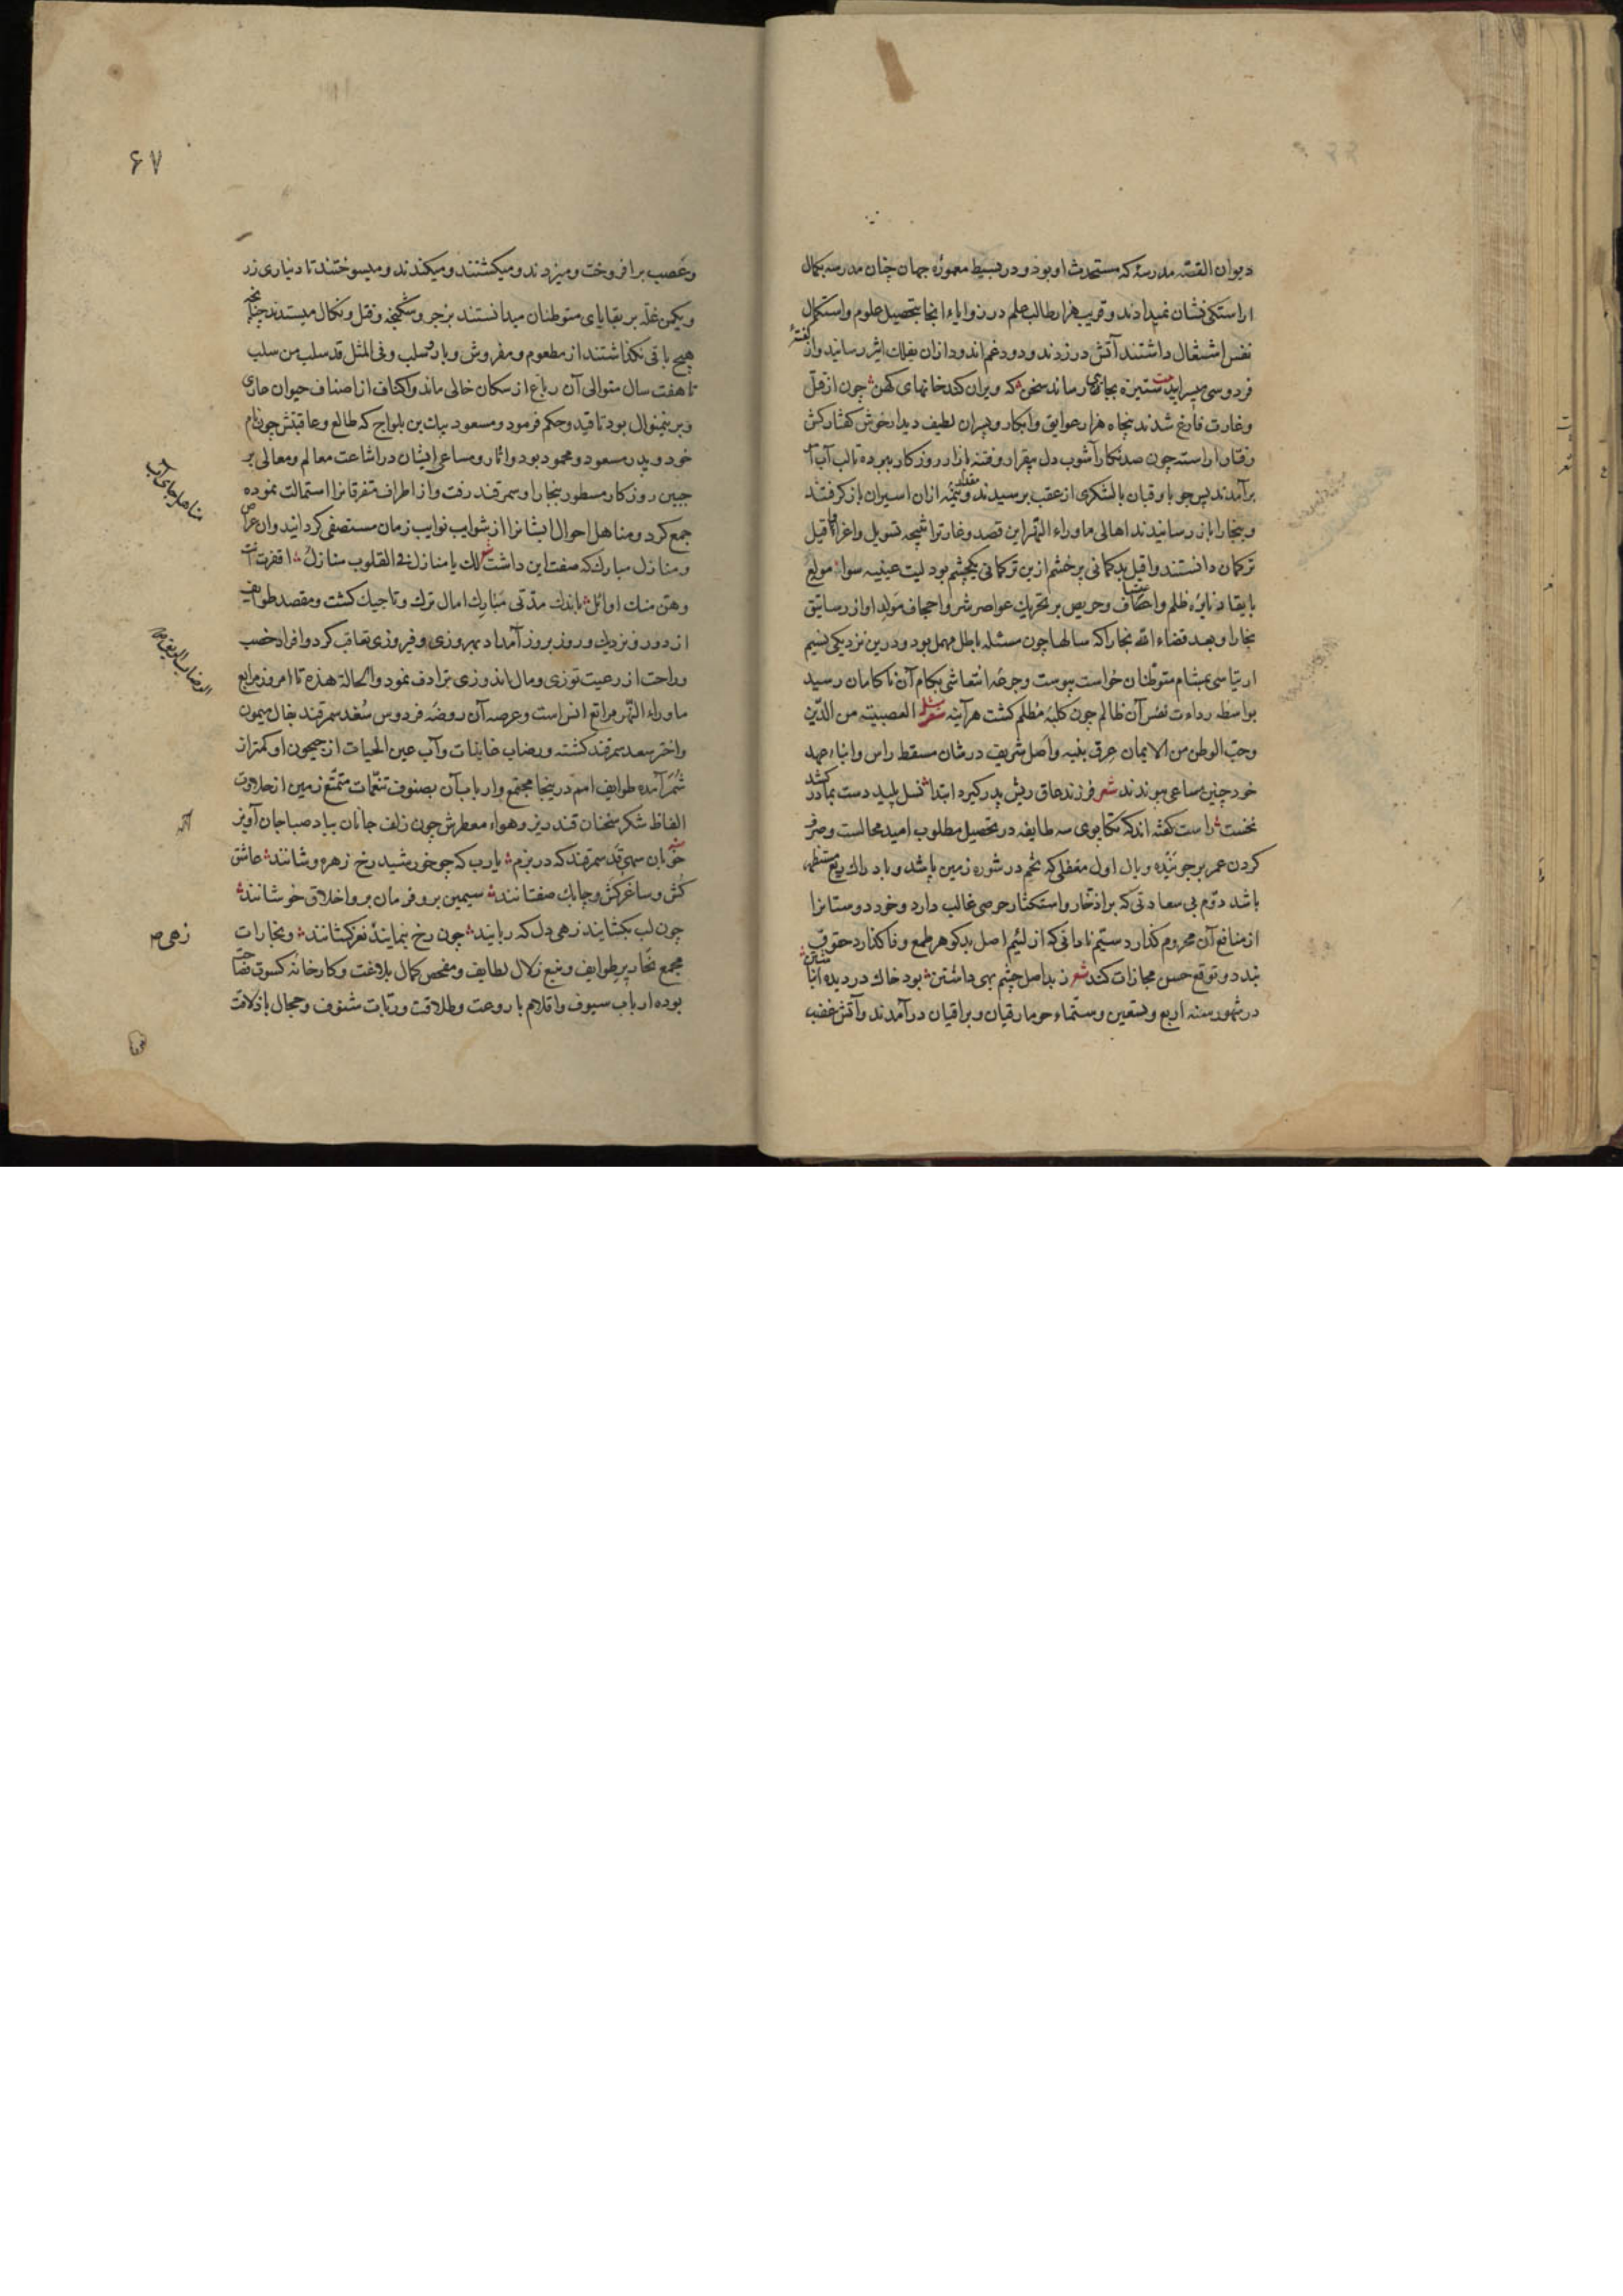 دیوان القصه مدرسهٔ که مستحدث او بود و در بسیط معمورهٔ جهان چنان مدرسه بکمال
اراستکی نشان نمیدادند و قریب هزار طالب علم در زوایاء انجا بتحصیل علوم و استکمال
نفس اشتغال داشتند آتش در زدند و دود غم اندود ازان بفلک اثیر رسانید واز کفتهٔ
فردوسی میسراید ستیزه بجائی رساند سخن که ویران کند خانهای کهن چون از قتل
وغارت فارغ شدند پنجاه هزار عوایق وابکار و پسران لطیف دیدار خوش کفتار کش
رفتار اراسته چون صد نکار آشوب دل بیقرار و فتنه بازار روزکار ببرده تا لب آب
برآمدند پس جوبا و قبان با لشکری از عقب برسیدند و بقیه ازان اسیران باز کرفتند
و ببخارا باز رسانیدند اهالی ماوراء النهر این قصد و غارترا نتیجه تسویل و اغراء اقبل
ترکمان دانستند واقبل بدکمانی پرخشم ازین ترکمانی یکچشم بود لیت عینیه سواء مولع
بایقاد نایره ظلم واعتساف وحریص بر تحریک عواصر شر واجحاف مولد او از رساتیق
بخارا و بعد قضاء الله بخارا که سالها چون مسئله باطل مهمل بود و درین نزدیکی نسیم
ارتیاشی بمشام متوطنان خواست پیوست وجرعه انتعاشی بکام آن ناکامان رسید
بواسطه رداءت نفس آن ظالم چون کلبهٔ مظلم کشت هر آینه شعر العصبیة من الدین
وحب الوطن من الایمان عرق بنیه واصل شریف در شان مسقط راس وابناء عهد
خود چنین مساعی نمودند شعر فرزند عاق ریش پدر کیرد ابتدا نسل پلید دست بمادر کشد
نخست راست کفته اند که تکاپوی سه طایفه در تحصیل مطلوب امید محالست و صرف
کردن عمر بر جوینده وبال اول مغفلی که تخم در شوره زمین پاشد و بادراک ریع مستظهر
باشد دوم بی سعادتی که بر ادخار و استکثار حرصی غالب دارد و خود دوستانرا
از منافع آن محروم کذارد ستیم نادانی که از لئیم اصل بدکوهر طمع وفا کذارد حقوق
بندد و توقع حسن مجازات کند شعر ز بد اصل چشم بهی داشتن بود خاک در دیده انباشتن
در شهور سنه اربع وتسعین وستماء جومارقیان و براقیان درآمدند وآتش غضب
۶۷
وغصب برافروخت و میزدند و میکشتند و میکندند و میسوختند تا دیناری زر
ویکمن غله بر بقایای متوطنان میدانستند بزجر و شکنجه و قتل و نکال میستدند چنانچه
هیچ باقی نکذاشتند از مطعوم و مفروش و بار و سلب و فی المثل قد سلب من سلب
تا هفت سال متوالی آن رباع از سکان خالی ماند واکناف از اصناف حیوان عاری
و برینمنوال بود تا قیدو حکم فرمود و مسعود بیک بن یلواج که طالع و عاقبتش چون نام
خود و پدر مسعود و محمود بود واثار و مساعی ایشان در اشاعت معالم و معالی بر
جبین روزکار مسطور ببخارا و سمرقند رفت و از اطراف متفرقانرا استمالت نموده
جمع کرد و مناهل احوال ایشانرا از شوایب نوایب زمان مستصفی کردانید وان عراص
و منازل مبارک که صفت این داشت شعر لک یا منازل فی القلوب منازل اقفرت انت
وهن منک اوائل باندک مدتی مبارک امال ترک و تاجیک کشت و مقصد طوایف
از دور و نزدیک و روز بروز آمداد بهروزی و فیروزی تعاقب کرد و افراد خصب
وراحت از رعیت توزی و مال اندوزی ترادف نمود والحالة هذه تا امروز مرابع
ماوراء النهر مراتع انس است وعرصه آن روضه فردوس سغد سمرقند بفال میمون
واختر سعد سمرقند کشته و رضاب خاینات وآب عین الحیات از جیحون او کمتر از
ثمر آمده طوایف امم در ینجا مجتمع وارباب آن بصنوف تنعمات متمتع زمین از حلاوت
الفاظ شکر سخنان قندریز و هواء معطرش چون زلف جانان بباد صبا جان آویز
خوبان سهی قد سمرقند که در بزم یارب که چو خورشید رخ زهره وشانند عاشق
کش و ساغرکش و چابک صفتانند سیمین بر و فرمان بر و اخلاق خوشانند
چون لب بکشایند زهی دل که ربایند چون رخ بنمایند نغز کشانند و بخارات
مجمع نحاریر طوایف و منبع زلال لطایف و مفحص کمال بلاغت و کارخانهٔ کسوت فصاحت
بوده ارباب سیوف واقلام با روعت و طلاقت و ربات شنوف و حجال با ذلاقت
مناهل جای آب
زهی ص